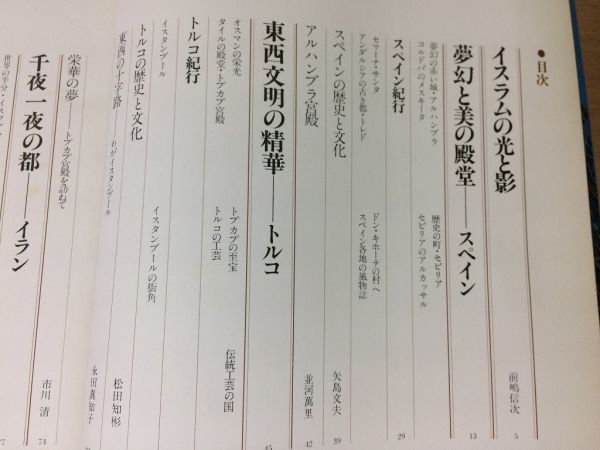 ●目次
イスラムの光と影 前嶋信次 5
夢幻と美の殿堂――スペイン 13
夢幻の赤い城・アルハンブラ 歴史の町・セビリア
コルドバのメスキータ セビリアのアルカッサル
スペイン紀行 29
セマーナ・サンタ ドン・キホーテの村へ
アンダルシアの古き都・トレド スペイン各地の風物誌
スペインの歴史と文化 矢島文夫 39
アルハンブラ宮殿 並河萬里 42
東西文明の精華――トルコ 45
オスマンの栄光 トプカプの至宝 伝統工芸の国
タイルの殿堂・トプカプ宮殿 トルコの工芸
トルコ紀行
イスタンブール イスタンブールの街角
トルコの歴史と文化 松田知彬
東西の十字路――わがイスタンブール 永田真知子
栄華の夢――トプカプ宮殿を訪ねて 市川 清 74
千夜一夜の都――イラン 77
世界の半分・イスファ